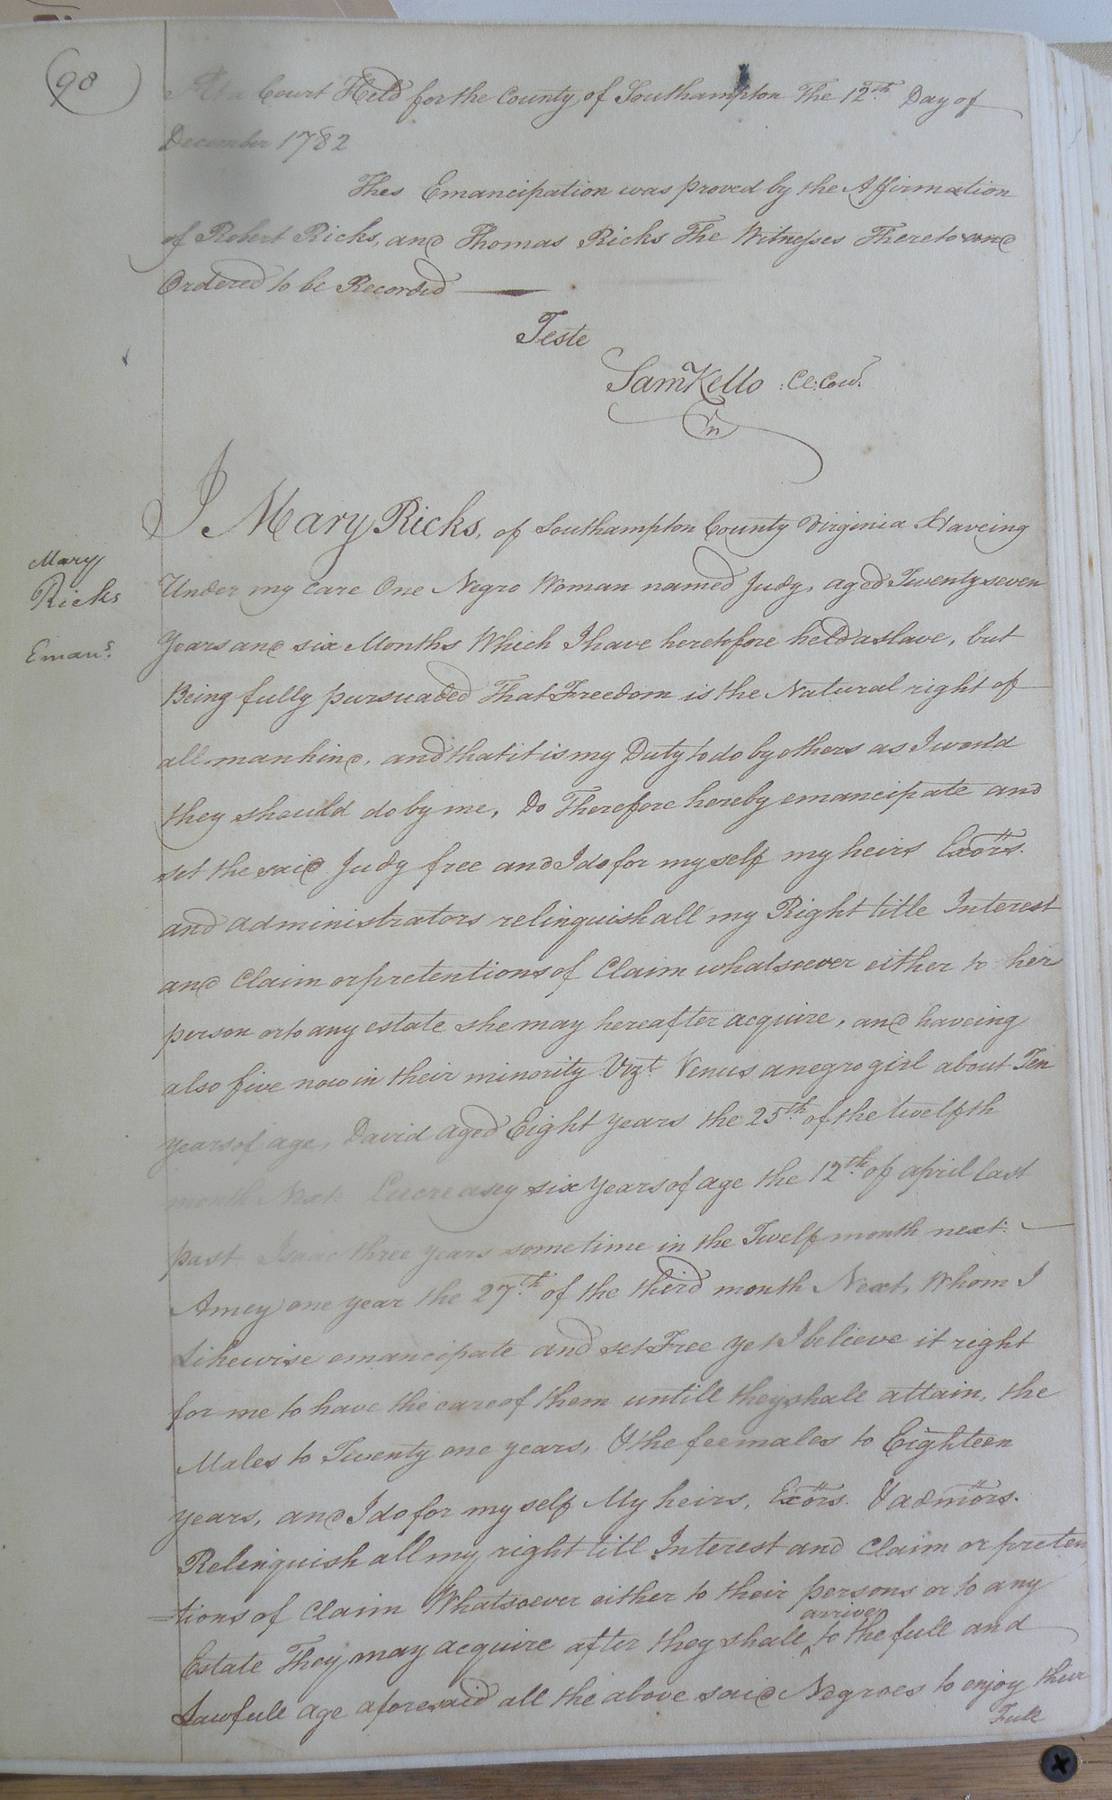 98
At a Court Held for the County of Southampton The 12th Day of
December 1782
Thes Emancipation was proved by the Affirmation
of Robert Ricks, and Thomas Ricks The Witnesses Thereto and
Ordered to be Recorded
Teste
Saml Kello Cl: Cur.
Mary
Ricks
Emans.
I Mary Ricks, of Southampton County Virginia Haveing
Under my care One Negro Woman named Judy, aged Twenty seven
Years and six Months Which I have heretofore held a slave, but
Being fully pursuaded That Freedom is the Natural right of
all mankind, and that it is my Duty to do by others as I would
they should do by me, Do Therefore hereby emancipate and
set the said Judy free and I do for my self my heirs Exors.
and administrators relinquish all my Right title Interest
and Claim or pretentions of Claim whatsoever either to her
person or to any estate she may hereafter acquire, and haveing
also five now in their minority Vizt. Venus a negro girl about Ten
years of age, David aged Eight years the 25th of the twelfth
month Next Lucreasy six years of age the 12th of april last
past Isaac three years sometime in the Twelf month next.
Amey one year the 27th of the third month Next, Whom I
Likewise emancipate and set Free yet I believe it right
for me to have the care of them untill they shall attain, the
Males to Twenty one years, & the feemales to Eighteen
years, and I do for my self My heirs, Exors. & admors.
Relinquish all my right titl Interest and Claim or preten
=tions of Claim Whatsoever either to their persons or to any
Estate They may acquire after they shall arrive to the full and
Lawfull age aforesaid all the above said Negroes to enjoy their
Full